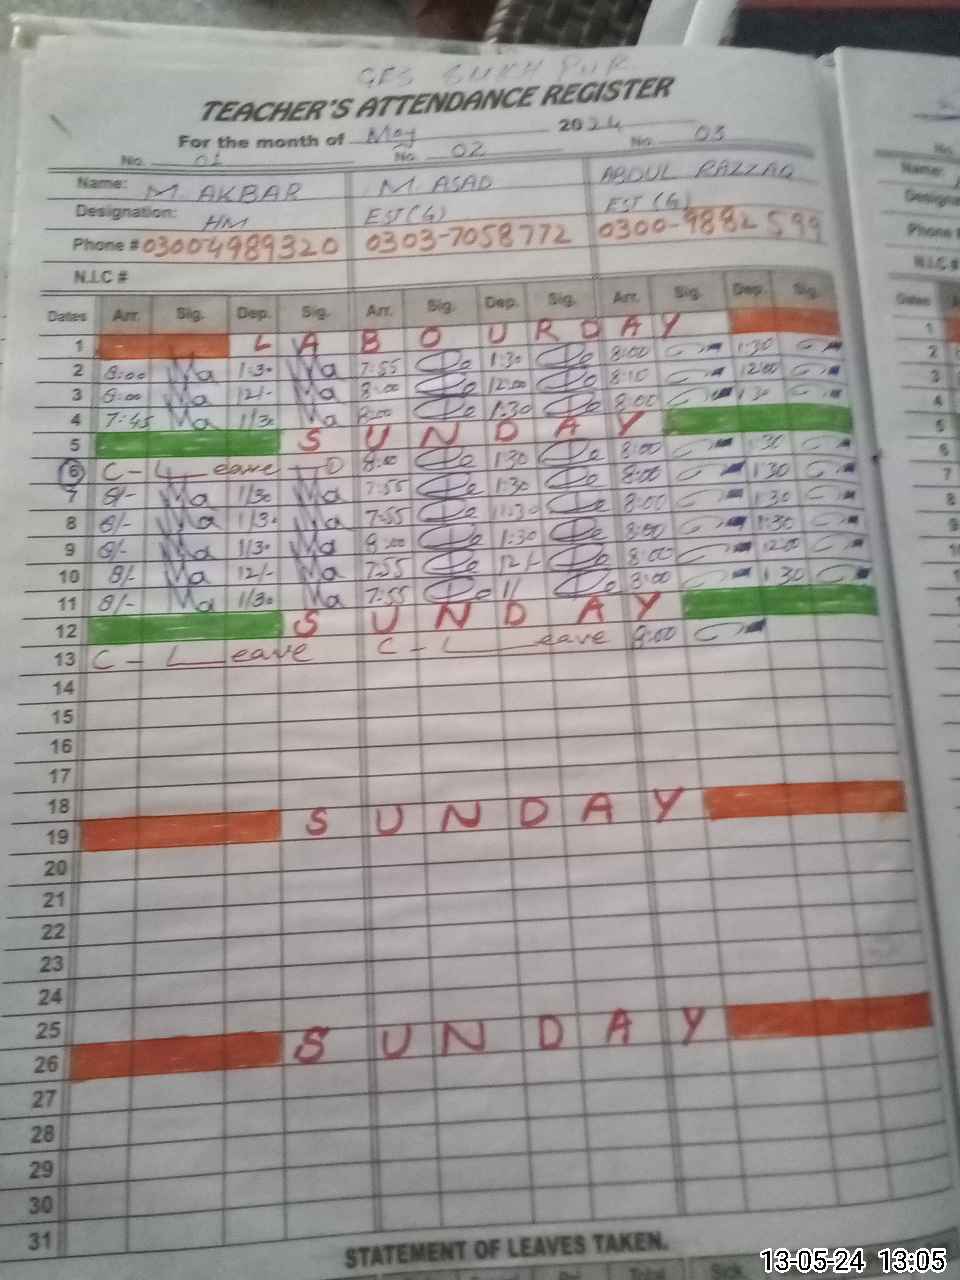 GES SUKH PUR
TEACHER'S ATTENDANCE REGISTER
For the month of May 2024
No. 01 No. 02 No. 03
Name: M. AKBAR M. ASAD ABDUL RAZZAQ
Designation: HM EST (G) EST (G)
Phone # 03004989320 0303-7058772 0300-9882599
N.I.C #
Dates Arr. Sig. Dep. Sig. Arr. Sig. Dep. Sig. Arr. Sig. Dep. Sig.
1 LABOUR DAY
2 8:00 Ma 1:30 Ma 7:55 1:30 8:00 1:30
3 8:00 Ma 12/- Ma 8:00 12:00 8:10 12:00
4 7:45 Ma 1/30 Ma 8:00 1:30 8:00 1:30
5 SUNDAY
6 C - Leave 8:00 1:30 8:00 1:30
7 8/- Ma 1/30 Ma 7:55 1:30 8:00 1:30
8 8/- Ma 1/30 Ma 7:55 1:30 8:00 1:30
9 8/- Ma 1/30 Ma 8:00 1:30 8:00 1:30
10 8/- Ma 12/- Ma 7:55 12/- 8:00 12:00
11 8/- Ma 1/30 Ma 7:55 1/ 8:00 1:30
12 SUNDAY
13 C - Leave C - Leave 8:00
14
15
16
17
18
19 SUNDAY
20
21
22
23
24
25
26 SUNDAY
27
28
29
30
31
STATEMENT OF LEAVES TAKEN.
13-05-24 13:05